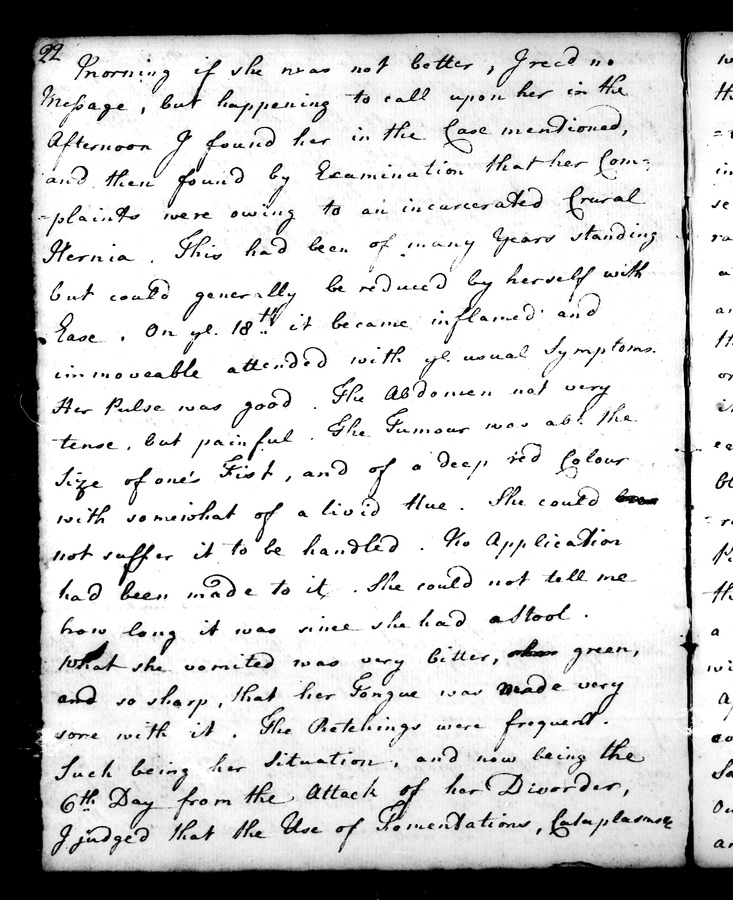 22
Morning if she was not better, I rec'd no
Message, but happening to call upon her in the
Afternoon I found her in the Case mentioned,
and then found by Examination that her Com=
=plaints were owing to an incarcerated Crural
Hernia. This had been of many Years standing
but could generally be reduced by herself with
Ease. On ye. 18th it became inflamed and
immoveable attended with ye. usual Symptoms.
Her Pulse was good. The Abdomen not very
tense, but painful. The Tumour was abt. the
Size of one's Fist, and of a deep red Colour
with somewhat of a livid Hue. She could
not suffer it to be handled. No Application
had been made to it. She could not tell me
how long it was since she had a Stool.
What she vomited was very bitter, green,
and so sharp, that her Tongue was made very
sore with it. The Retchings were frequent.
Such being her Situation, and now being the
6th Day from the Attack of her Disorder,
I judged that the Use of Fomentations, Cataplasms &c